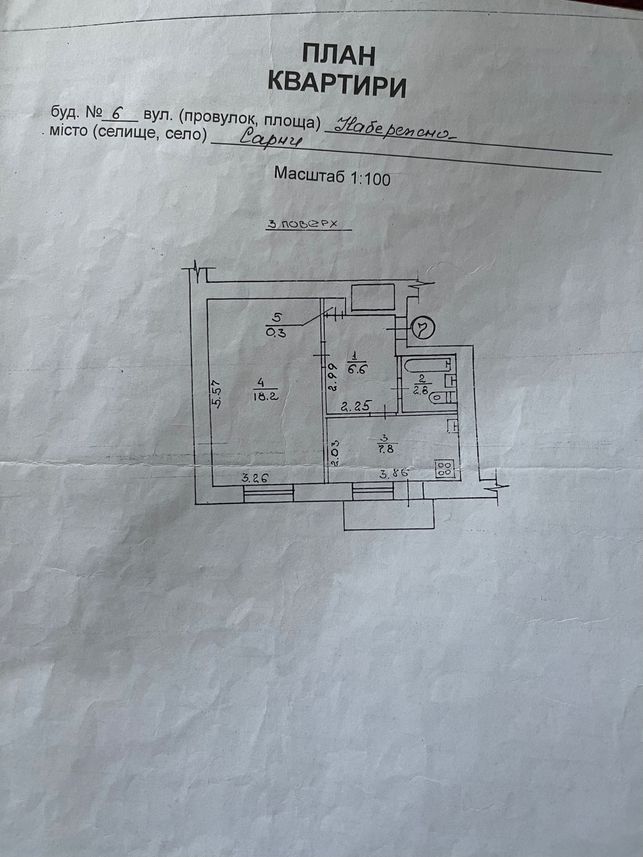 ПЛАН
КВАРТИРИ
буд. № 6 вул. (провулок, площа) Набережно
місто (селище, село) Сарни
Масштаб 1:100
3 поверх
5
0.3
7
1
6.6
2.99
2
2.8
5.57
4
18.2
2.25
3
7.8
2.03
3.26
3.86